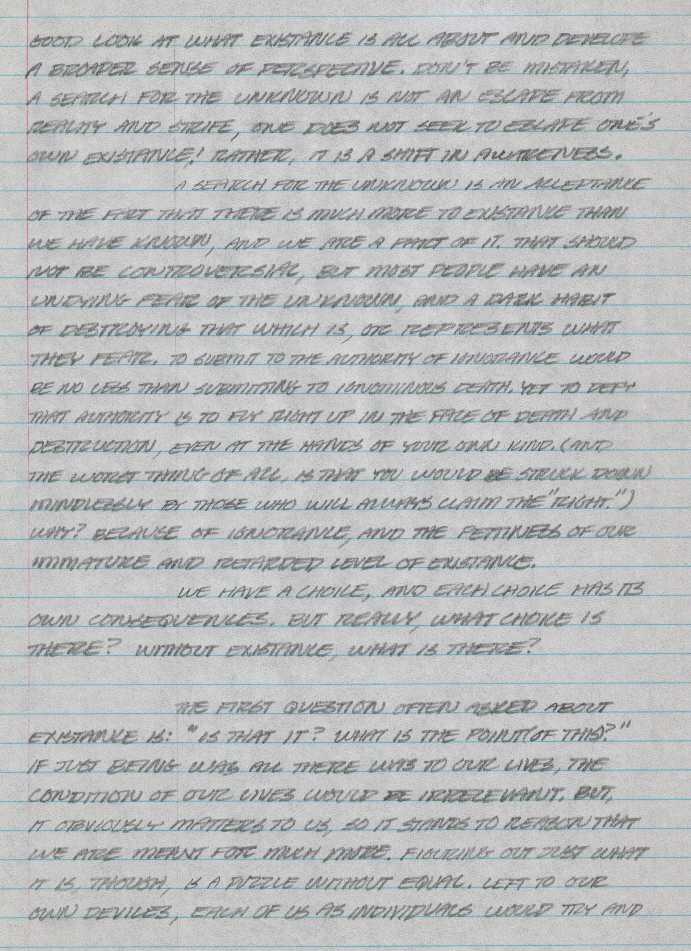 GOOD LOOK AT WHAT EXISTANCE IS ALL ABOUT AND DEVELOPE
A BROADER SENSE OF PERSPECTIVE. DON'T BE MISTAKEN,
A SEARCH FOR THE UNKNOWN IS NOT AN ESCAPE FROM
REALITY AND STRIFE, ONE DOES NOT SEEK TO ESCAPE ONE'S
OWN EXISTANCE! RATHER, IT IS A SHIFT IN AWARENESS.
A SEARCH FOR THE UNKNOWN IS AN ACCEPTANCE
OF THE FACT THAT THERE IS MUCH MORE TO EXISTANCE THAN
WE HAVE KNOWN, AND WE ARE A PART OF IT. THAT SHOULD
NOT BE CONTROVERSIAL, BUT MOST PEOPLE HAVE AN
UNDYING FEAR OF THE UNKNOWN, AND A DARK HABIT
OF DESTROYING THAT WHICH IS, OR REPRESENTS WHAT
THEY FEAR. TO SUBMIT TO THE AUTHORITY OF IGNORANCE WOULD
BE NO LESS THAN SUBMITTING TO IGNOMINOUS DEATH. YET TO DEFY
THAT AUTHORITY IS TO FLY RIGHT UP IN THE FACE OF DEATH AND
DESTRUCTION, EVEN AT THE HANDS OF YOUR OWN KIND. (AND
THE WORST THING OF ALL, IS THAT YOU WOULD BE STRUCK DOWN
MINDLESSLY BY THOSE WHO WILL ALWAYS CLAIM THE "RIGHT.")
WHY? BECAUSE OF IGNORANCE, AND THE PETTINESS OF OUR
IMMATURE AND RETARDED LEVEL OF EXISTANCE.
WE HAVE A CHOICE, AND EACH CHOICE HAS ITS
OWN CONSEQUENCES. BUT REALLY, WHAT CHOICE IS
THERE? WITHOUT EXISTANCE, WHAT IS THERE?
THE FIRST QUESTION OFTEN ASKED ABOUT
EXISTANCE IS: "IS THAT IT? WHAT IS THE POINT (OF THIS)?"
IF JUST BEING WAS ALL THERE WAS TO OUR LIVES, THE
CONDITION OF OUR LIVES WOULD BE IRRELEVANT. BUT,
IT OBVIOUSLY MATTERS TO US, SO IT STANDS TO REASON THAT
WE ARE MEANT FOR MUCH MORE. FIGURING OUT JUST WHAT
IT IS, THOUGH, IS A PUZZLE WITHOUT EQUAL. LEFT TO OUR
OWN DEVICES, EACH OF US AS INDIVIDUALS WOULD TRY AND